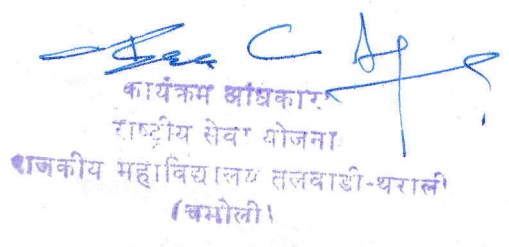 कार्यक्रम अधिकारी
राष्ट्रीय सेवा योजना
राजकीय महाविद्यालय तलवाडी-थराली
(चमोली)